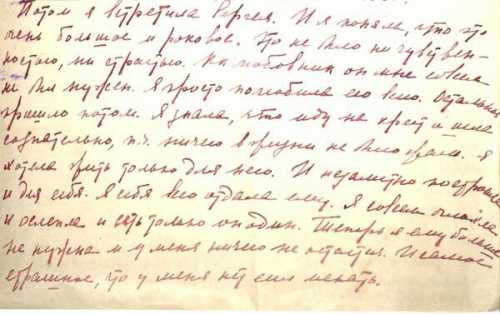 Потом я встретила Сергея. И я поняла, что это
очень большое и роковое. Это не было ни чувствен-
ностью, ни страстью. Как любовник он мне совсем
не был нужен. Я просто полюбила его всю. Остальное
пришло потом. Я знала, что иду на крест и шла
сознательно, п.ч. ничего в жизни не было жаль. Я
хотела жить только для него. И незаметно построила
и для себя. Я себя всю отдала ему. Я совсем оглохла
и ослепла и есть только он один. Теперь я ему больше
не нужна и у меня ничего не остается. И самое
страшное, что у меня нет сил